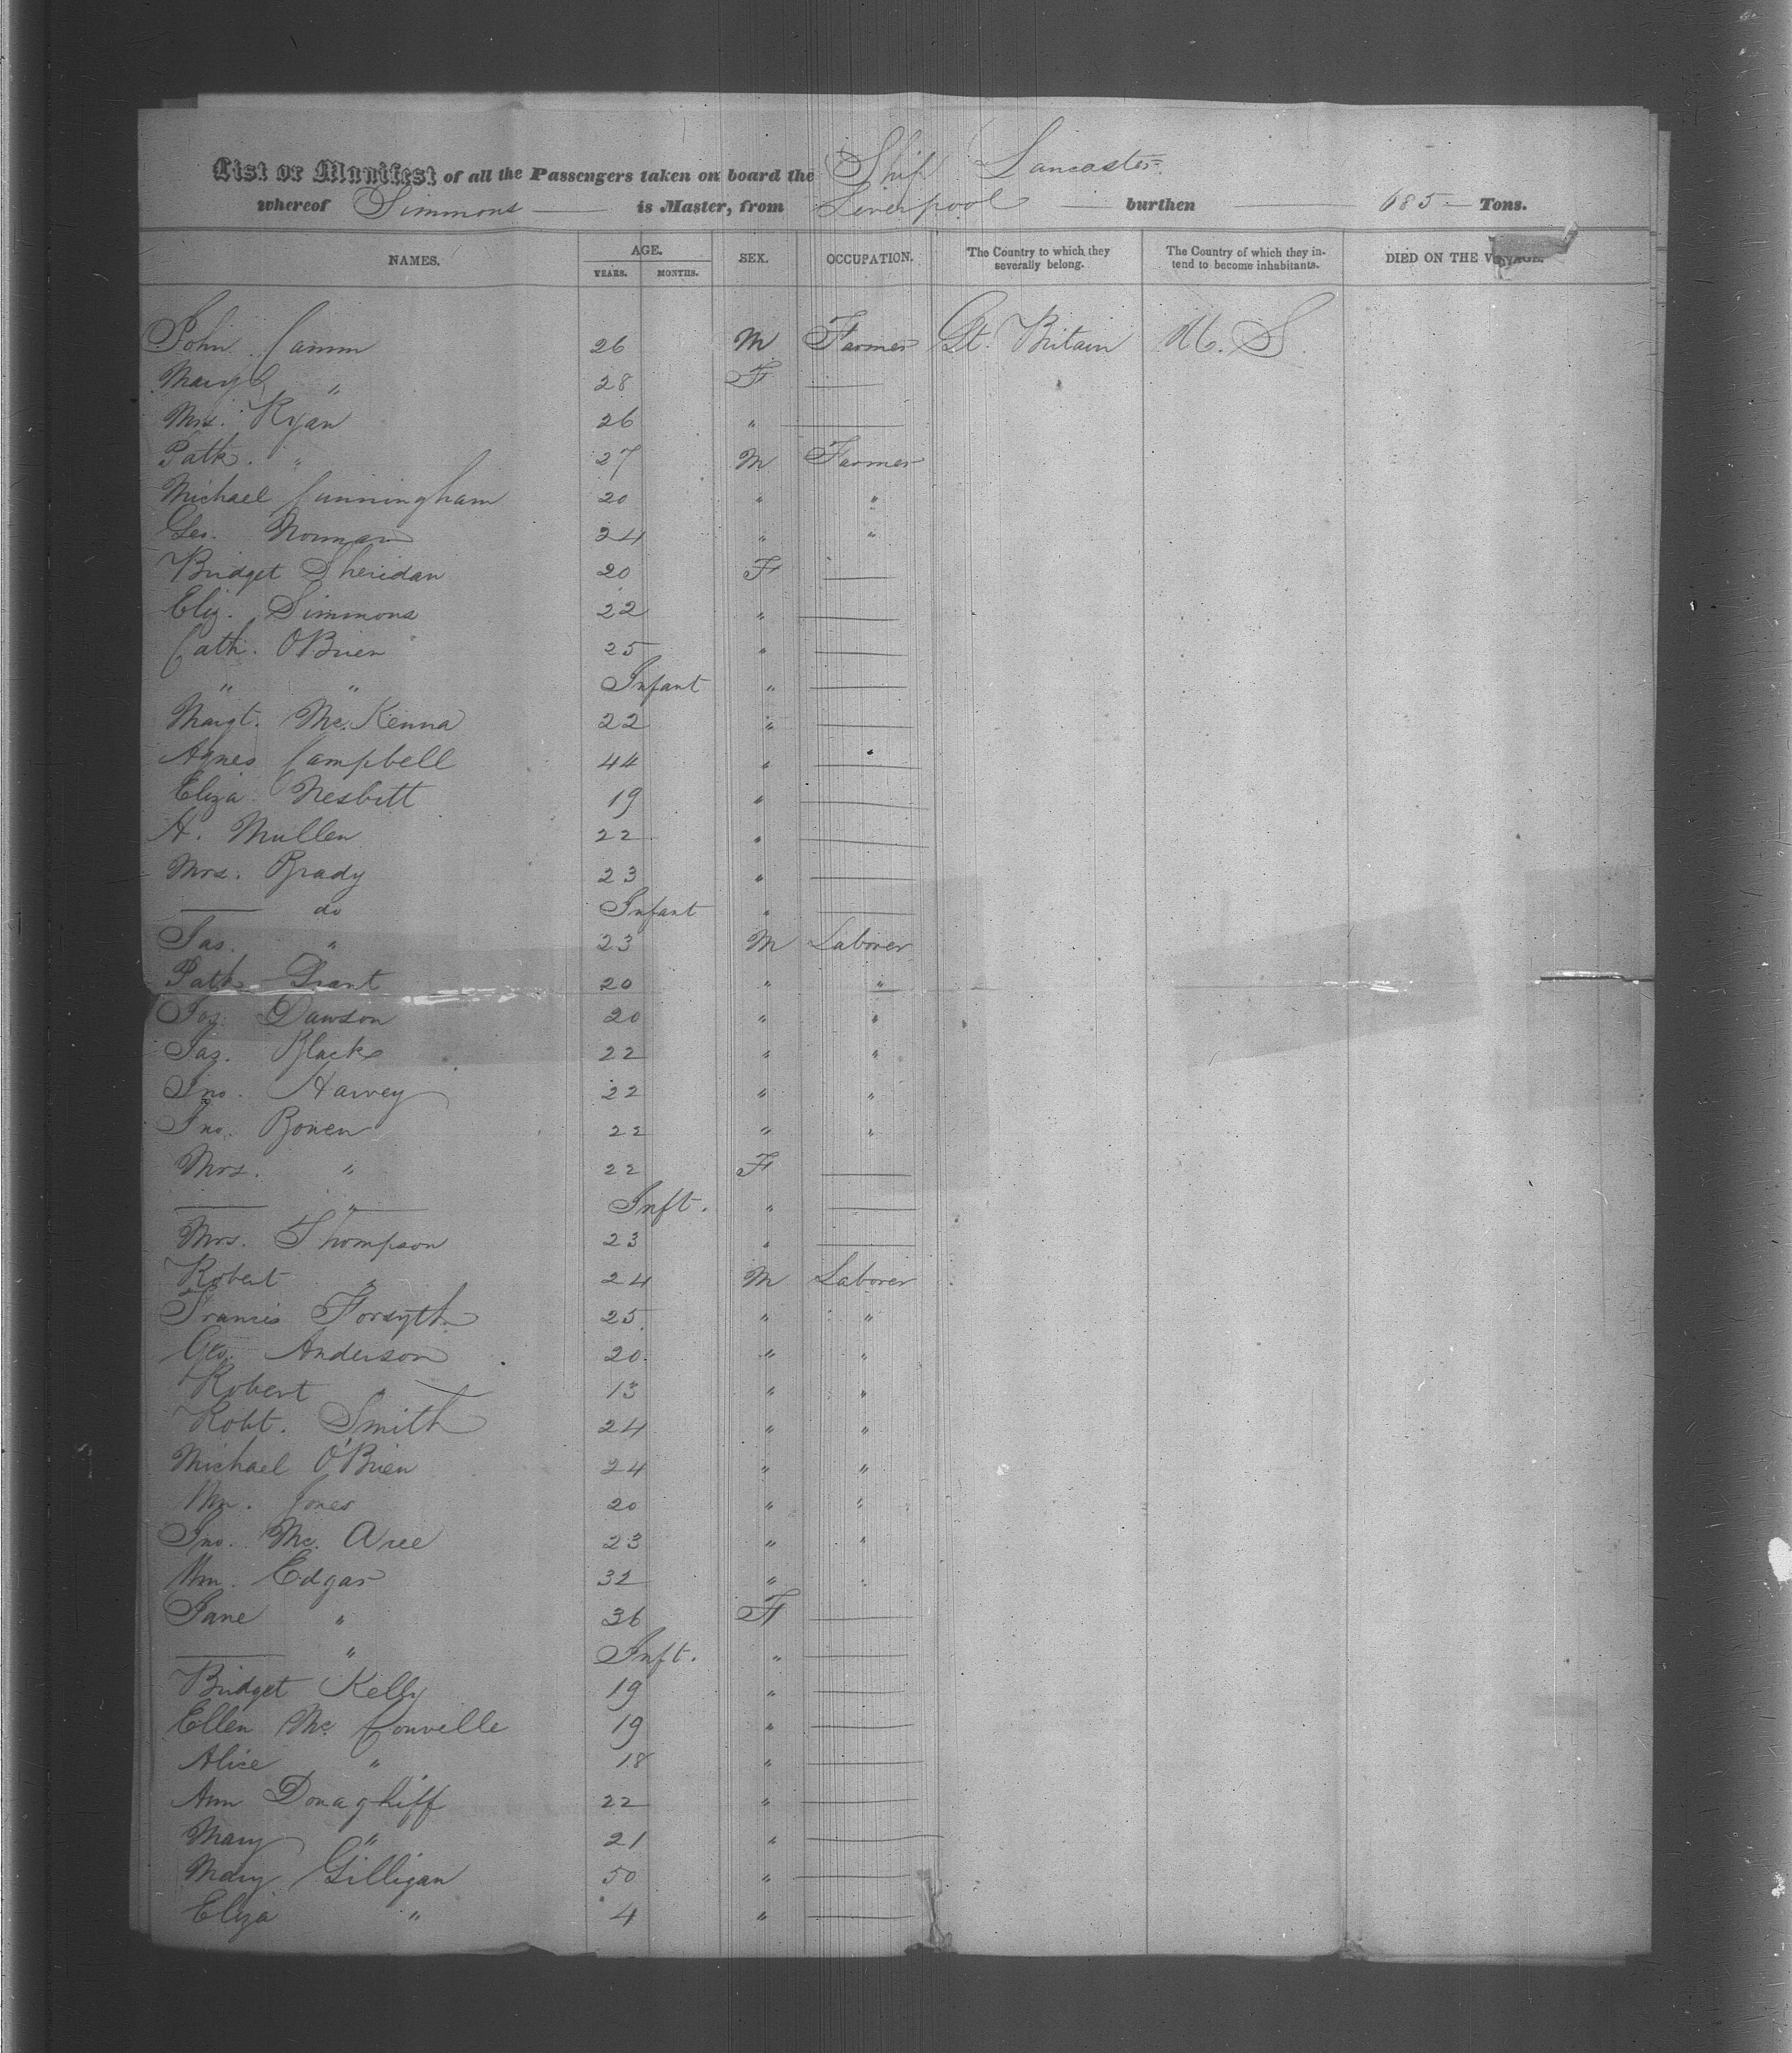 List or Manifest of all the Passengers taken on board the Ship Lancaster
whereof Simmons is Master, from Liverpool burthen 685 Tons.
NAMES. AGE. YEARS. MONTHS. SEX. OCCUPATION. The Country to which they severally belong. The Country of which they intend to become inhabitants. DIED ON THE VOYAGE.
John Camm 26 M Farmer Gt. Britain U. S.
Mary " 28 F —
Mrs. Ryan 26 " —
Patk. " 27 M Farmer
Michael Cunningham 20 " "
Geo. Norman 24 " "
Bridget Sheridan 20 F —
Eliz. Simmons 22 " —
Cath. O'Brien 25 " —
" " Infant " —
Margt. McKenna 22 " —
Agnes Campbell 44 " —
Eliza Nesbitt 19 " —
A. Mullen 22 " —
Mrs. Brady 23 " —
— do Infant " —
Jas. " 23 M Laborer
Patk Grant 20 " "
Jas. Dawson 20 " "
Jas. Black 22 " "
Jno. Harvey 22 " "
Jno. Bowen 22 " "
Mrs. " 22 F —
— " Inft. " —
Mrs. Thompson 23 " —
Robert " 24 M Laborer
Francis Forsyth 25 " "
Geo. Anderson 20 " "
Robert " 13 " "
Robt. Smith 24 " "
Michael O'Brien 24 " "
Wm. Jones 20 " "
Jno. Mc. Aree 23 " "
Wm. Edgar 32 " "
Jane " 36 F —
— " Inft. " —
Bridget Kelly 19 " —
Ellen Mc Convelle 19 " —
Alice " 18 " —
Ann Donaghiff 22 " —
Mary " 21 " —
Mary Gilligan 50 " —
Eliza " 4 " —